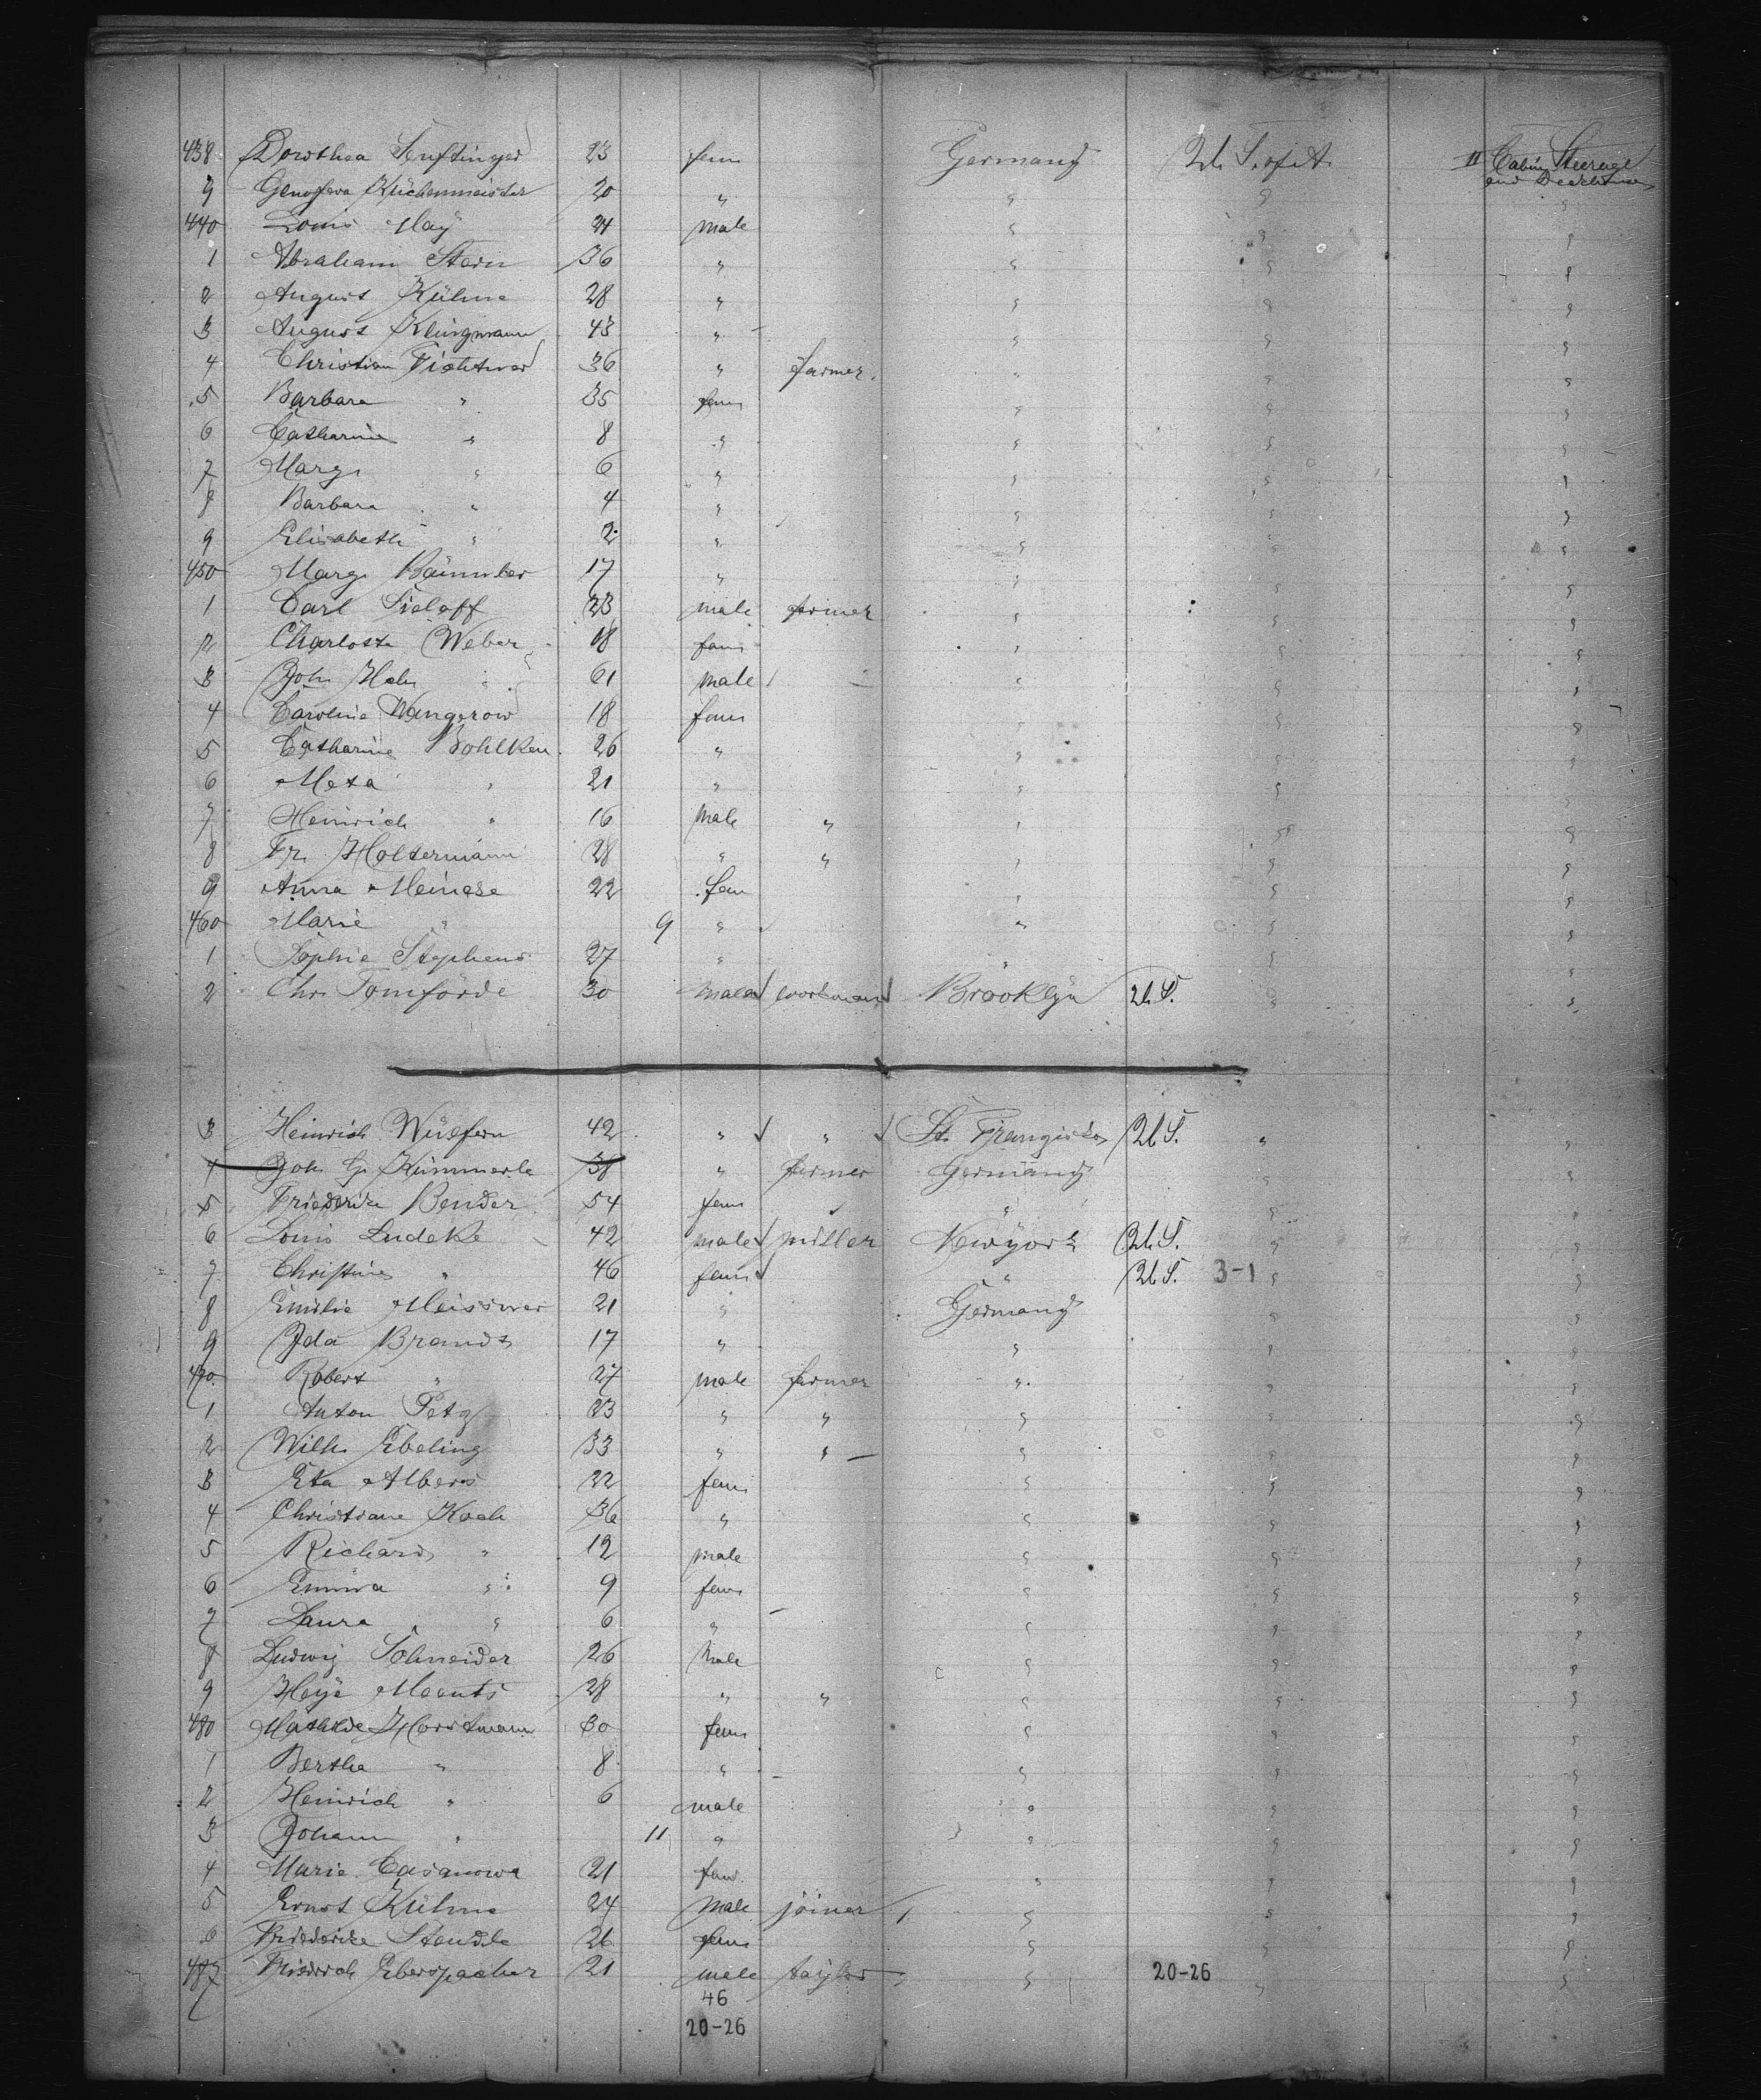 438 Dorothea Senftinger 23 fem Germany U. S. of A. II Cabin Steerage
and Deckhouse
9 Genofeva Küchenmeister 20 " " " "
440 Louis May 24 male " " "
1 Abraham Stern 36 " " " "
2 August Kühne 28 " " " "
3 August Klingmann 43 " " " "
4 Christian Fichtner 36 " farmer " " "
5 Barbara " 35 fem " " "
6 Catharine " 8 " " " "
7 Marg. " 6 " " " "
8 Barbara " 4 " " " "
9 Elisabeth " 2 " " " "
450 Marg. Bäumler 17 " " " "
1 Carl Sieloff 23 male farmer " " "
2 Charlotte Weber 18 fem " " "
3 Joh. Hahn 61 male " " "
4 Caroline Wangerow 18 fem " " "
5 Catharine Bohlken 26 " " " "
6 Meta " 21 " " " "
7 Heinrich " 16 male " " " "
8 Fr. Holtermann 28 " " " " "
9 Anna Meinese 22 fem " " "
460 Marie " 9 " " " "
1 Sophie Stephens 27 " " " "
2 Chr. Tomförde 30 male workman Brooklyn U. S. " "
3 Heinrich 42 " " St. Frangisko U. S. " "
4 Joh. G. Kümmerle 38 " farmer Germany " "
5 Friederike Bender 54 fem " " "
6 Louis Ludeke 42 male miller Newyork U. S. " "
7 Christine " 46 fem " U. S. 3-1 " "
8 Emilie Meissner 21 " Germany " "
9 Ida Brandt 17 " " " "
470 Robert " 27 male farmer " " "
1 Anton Petz 23 " " " " "
2 Wilh. Ebeling 33 " " " " "
3 Eta Albers 22 fem " " "
4 Christiane Koch 36 " " " "
5 Richard " 12 male " " "
6 Emma " 9 fem " " "
7 Laura " 6 " " " "
8 Ludwig Schneider 26 male " " "
9 Heye Meents 28 " " " " "
480 Mathilde Horstmann 30 fem " " "
1 Bertha " 8 " " " "
2 Heinrich " 6 male " " "
3 Johann " 11 " " " "
4 Marie Casanowa 21 fem " " "
5 Ernst Kühne 24 male joiner " " "
6 Friederike Steudle 21 fem " " "
487 Friedrich Eberspacher 21 male taylor " 20-26 " "
46
20-26